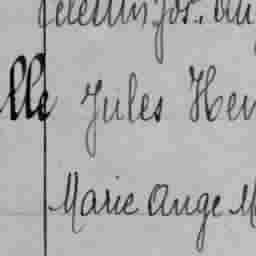 Jos. Au
lle Jules Hen
Marie Ange M